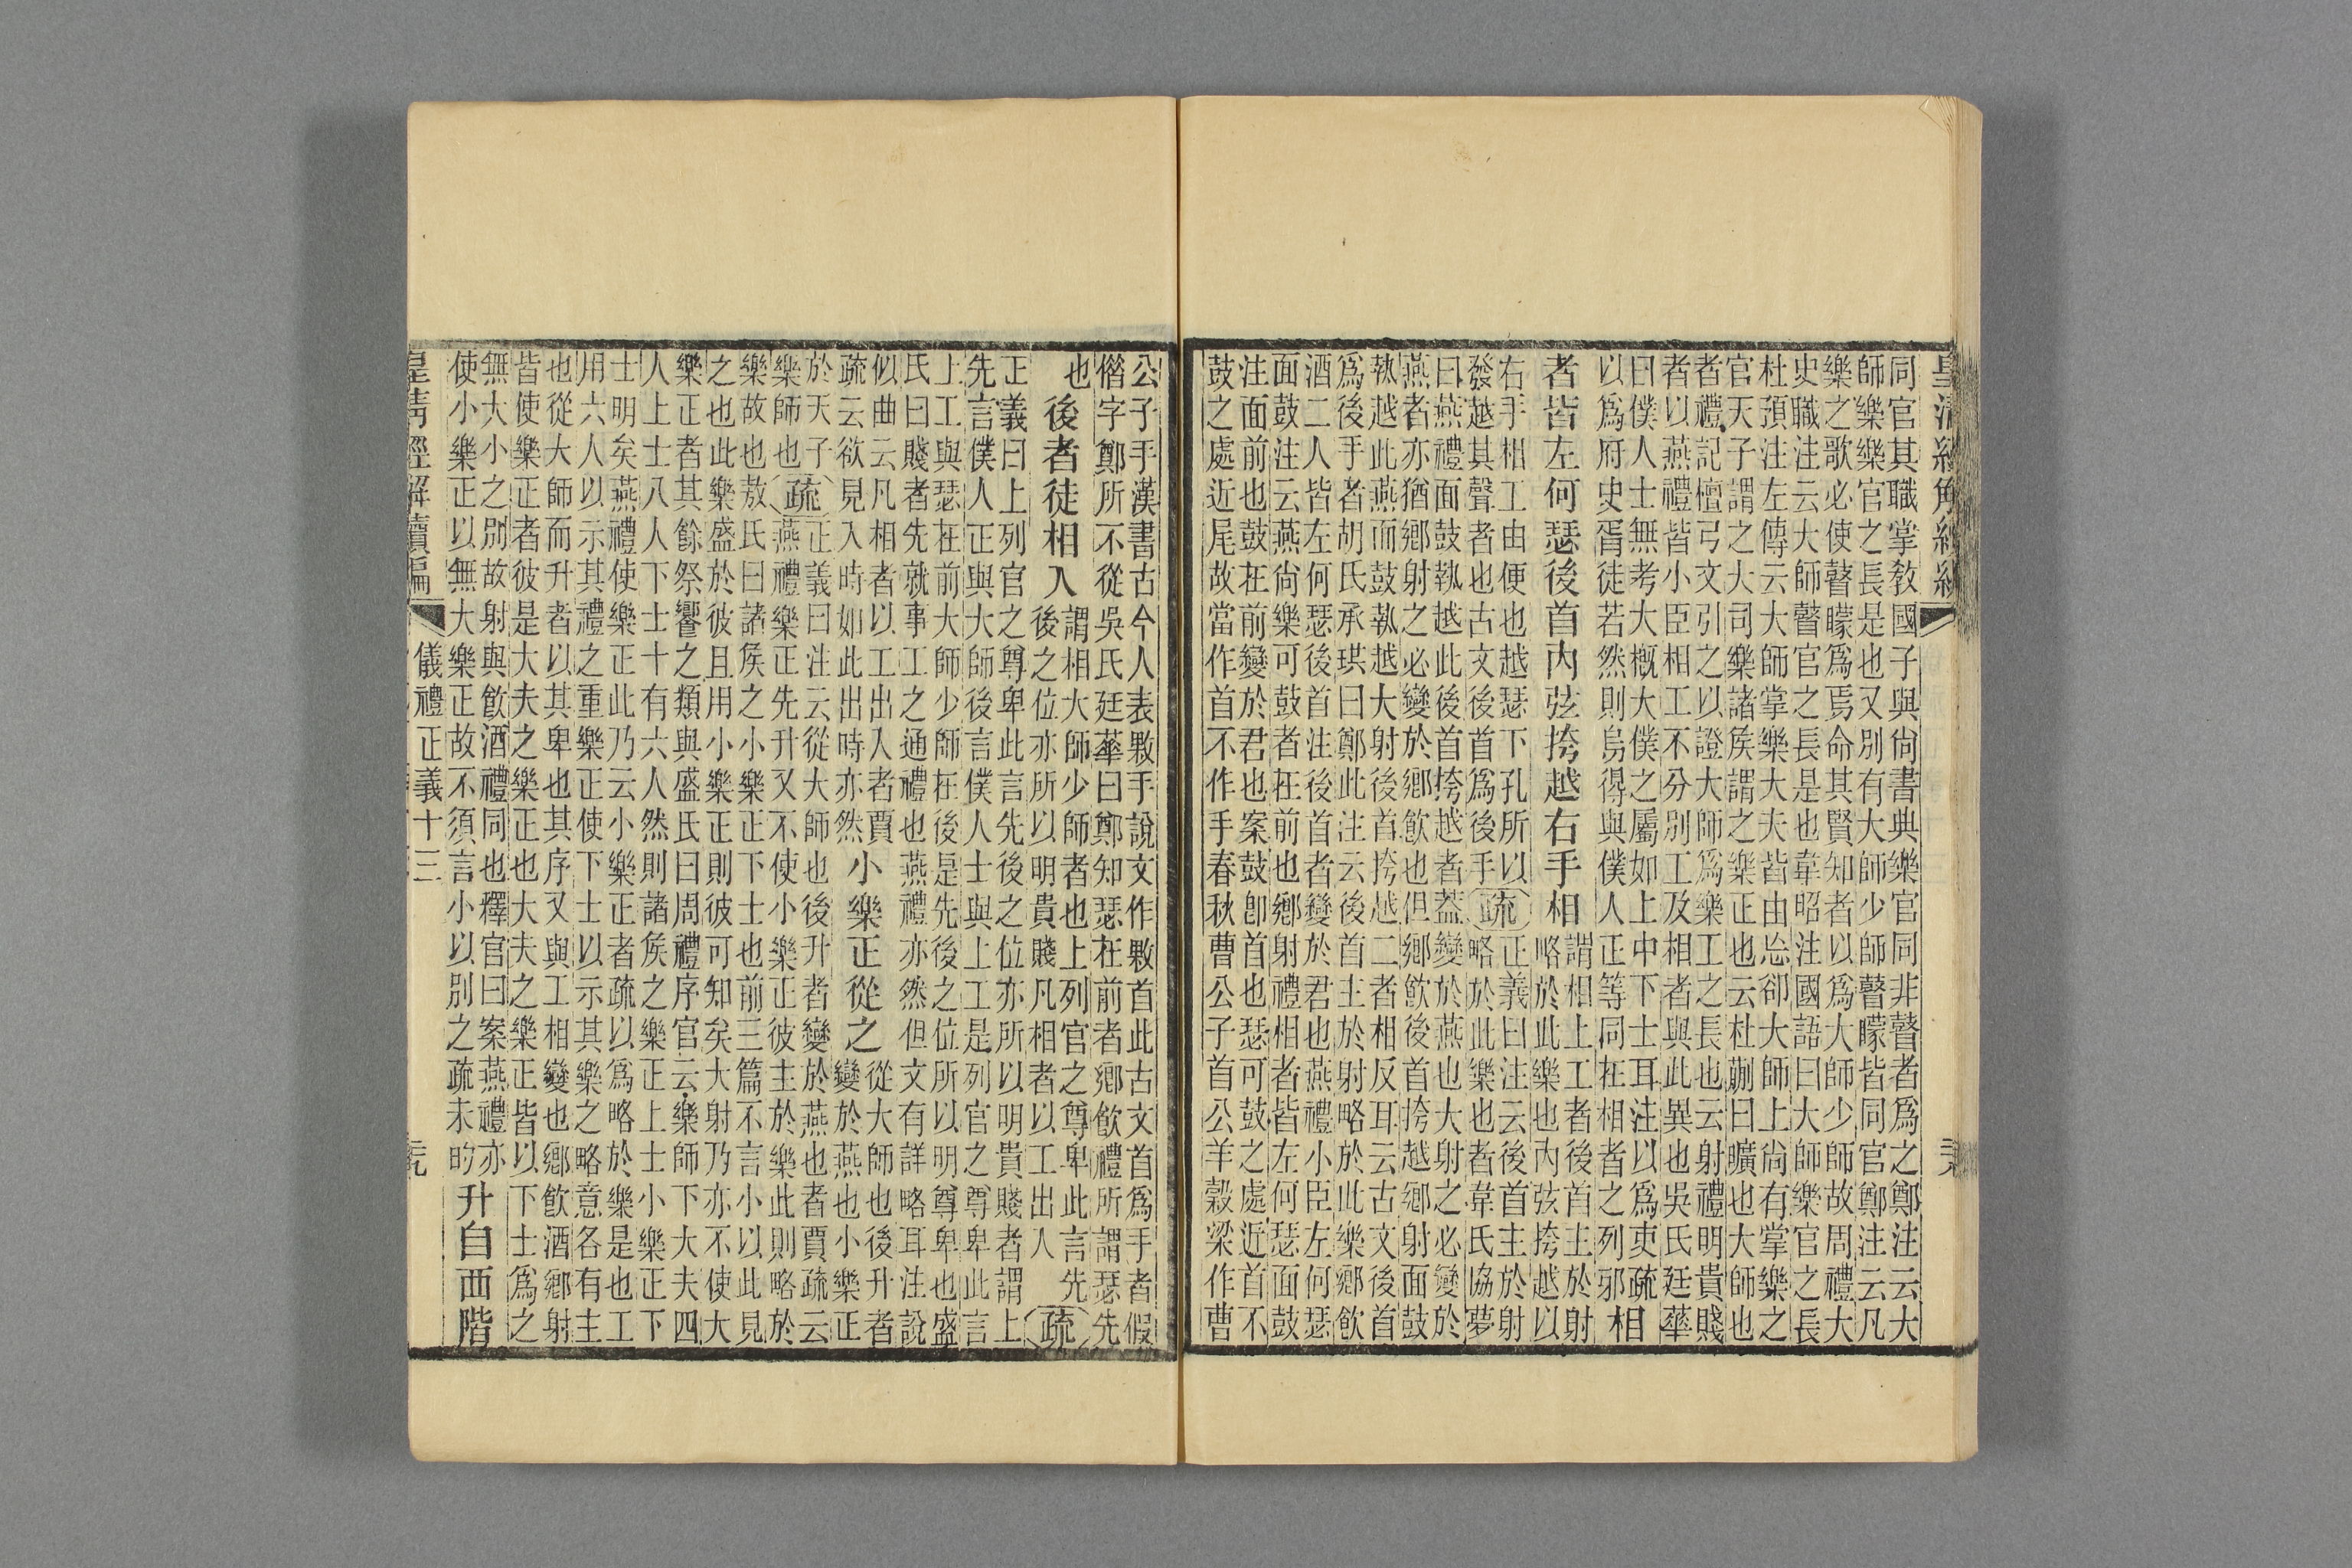 同官其職掌敎國子與尙書典樂官同非瞽者爲之鄭注云大
師樂樂官之長是也又別有大師少師瞽矇皆同官鄭注云凡
樂之歌必使瞽矇爲焉命其賢知者以爲大師少師故周禮大
史職注云大師瞽官之長是也韋昭注國語曰大師樂官之長
杜預注左傳云大師掌樂大夫皆由㤀卻大師上尙有掌樂之
官天子謂之大司樂諸矦謂之樂正也云杜蒯曰曠也大師也
者禮記檀弓文引之以證大師爲樂工之長也云射禮明貴賤
者以燕禮皆小臣相工不分別工及相者與此異也吳氏廷華
曰僕人士無考大槪大僕之屬如上中下士耳注以爲吏疏
以爲府史胥徒若然則烏得與僕人正等同在相者之列邪相
者皆左何瑟後首內弦挎越右手相
謂相上工者後首主於射
略於此樂也內弦挎越以
右手相工由便也越瑟下孔所以
發越其聲者也古文後首爲後手
疏
正義曰注云後首主於射
略於此樂也者韋氏協夢
曰燕禮面鼓執越此後首挎越者蓋變於燕也大射之必變於
燕者亦猶鄉射之必變於鄉飮也但鄉飮後首挎越鄉射面鼓
執越此燕而鼓執越大射後首挎越二者相反耳云古文後首
爲後手者胡氏承珙曰鄭此注云後首主於射略於此樂鄉飮
酒二人皆左何瑟後首注後首者變於君也燕禮小臣左何瑟
面鼓注云燕尙樂可鼓者在前也鄉射禮相者皆左何瑟面鼓
注面前也鼓在前變於君也案鼓卽首也瑟可鼓之處近首不
鼓之處近尾故當作首不作手春秋曹公子首公羊穀梁作曹
公子手漢書古今人表㪍手說文作㪍首此古文首爲手者假
偺字鄭所不從吳氏廷華曰鄭知瑟在前者鄉飮禮所謂瑟先
也後者徒相入
謂相大師少師者也上列官之尊卑此言先
後之位亦所以明貴賤凡相者以工出入
疏
正義曰上列官之尊卑此言先後之位亦所以明貴賤者謂上
先言僕人正與大師後言僕人士與上工是列官之尊卑此言
上工與瑟在前大師少師在後是先後之位所以明尊卑也盛
氏曰賤者先就事工之通禮也燕禮亦然但文有詳略耳注說
似曲云凡相者以工出入者賈
疏云欲見入時如此出時亦然
小樂正從之
從大師也後升者
變於燕也小樂正
於天子
樂師也
疏
正義曰注云從大師也後升者變於燕也者賈疏云
燕禮樂正先升又不使小樂正彼主於樂此則略於
樂故也敖氏曰諸矦之小樂正下士也前三篇不言小以此見
之也此樂盛於彼且用小樂正則彼可知矣大射乃亦不使大
樂正者其餘祭饗之類與盛氏曰周禮序官云樂師下大夫四
人上士八人下士十有六人然則諸矦之樂正上士小樂正下
士明矣燕禮使樂正此乃云小樂正者疏以爲略於樂是也工
用六人以示其禮之重樂正使下士以示其樂之略意各有主
也從大師而升者以其卑也其序又與工相變也鄉飮酒鄉射
皆使樂正者彼是大夫之樂正也大夫之樂正皆以下士爲之
無大小之別故射與飮酒禮同也釋官曰案燕禮亦
使小樂正以無大樂正故不須言小以別之疏未旳
升自西階
皇淸經解續編 儀禮正義十三